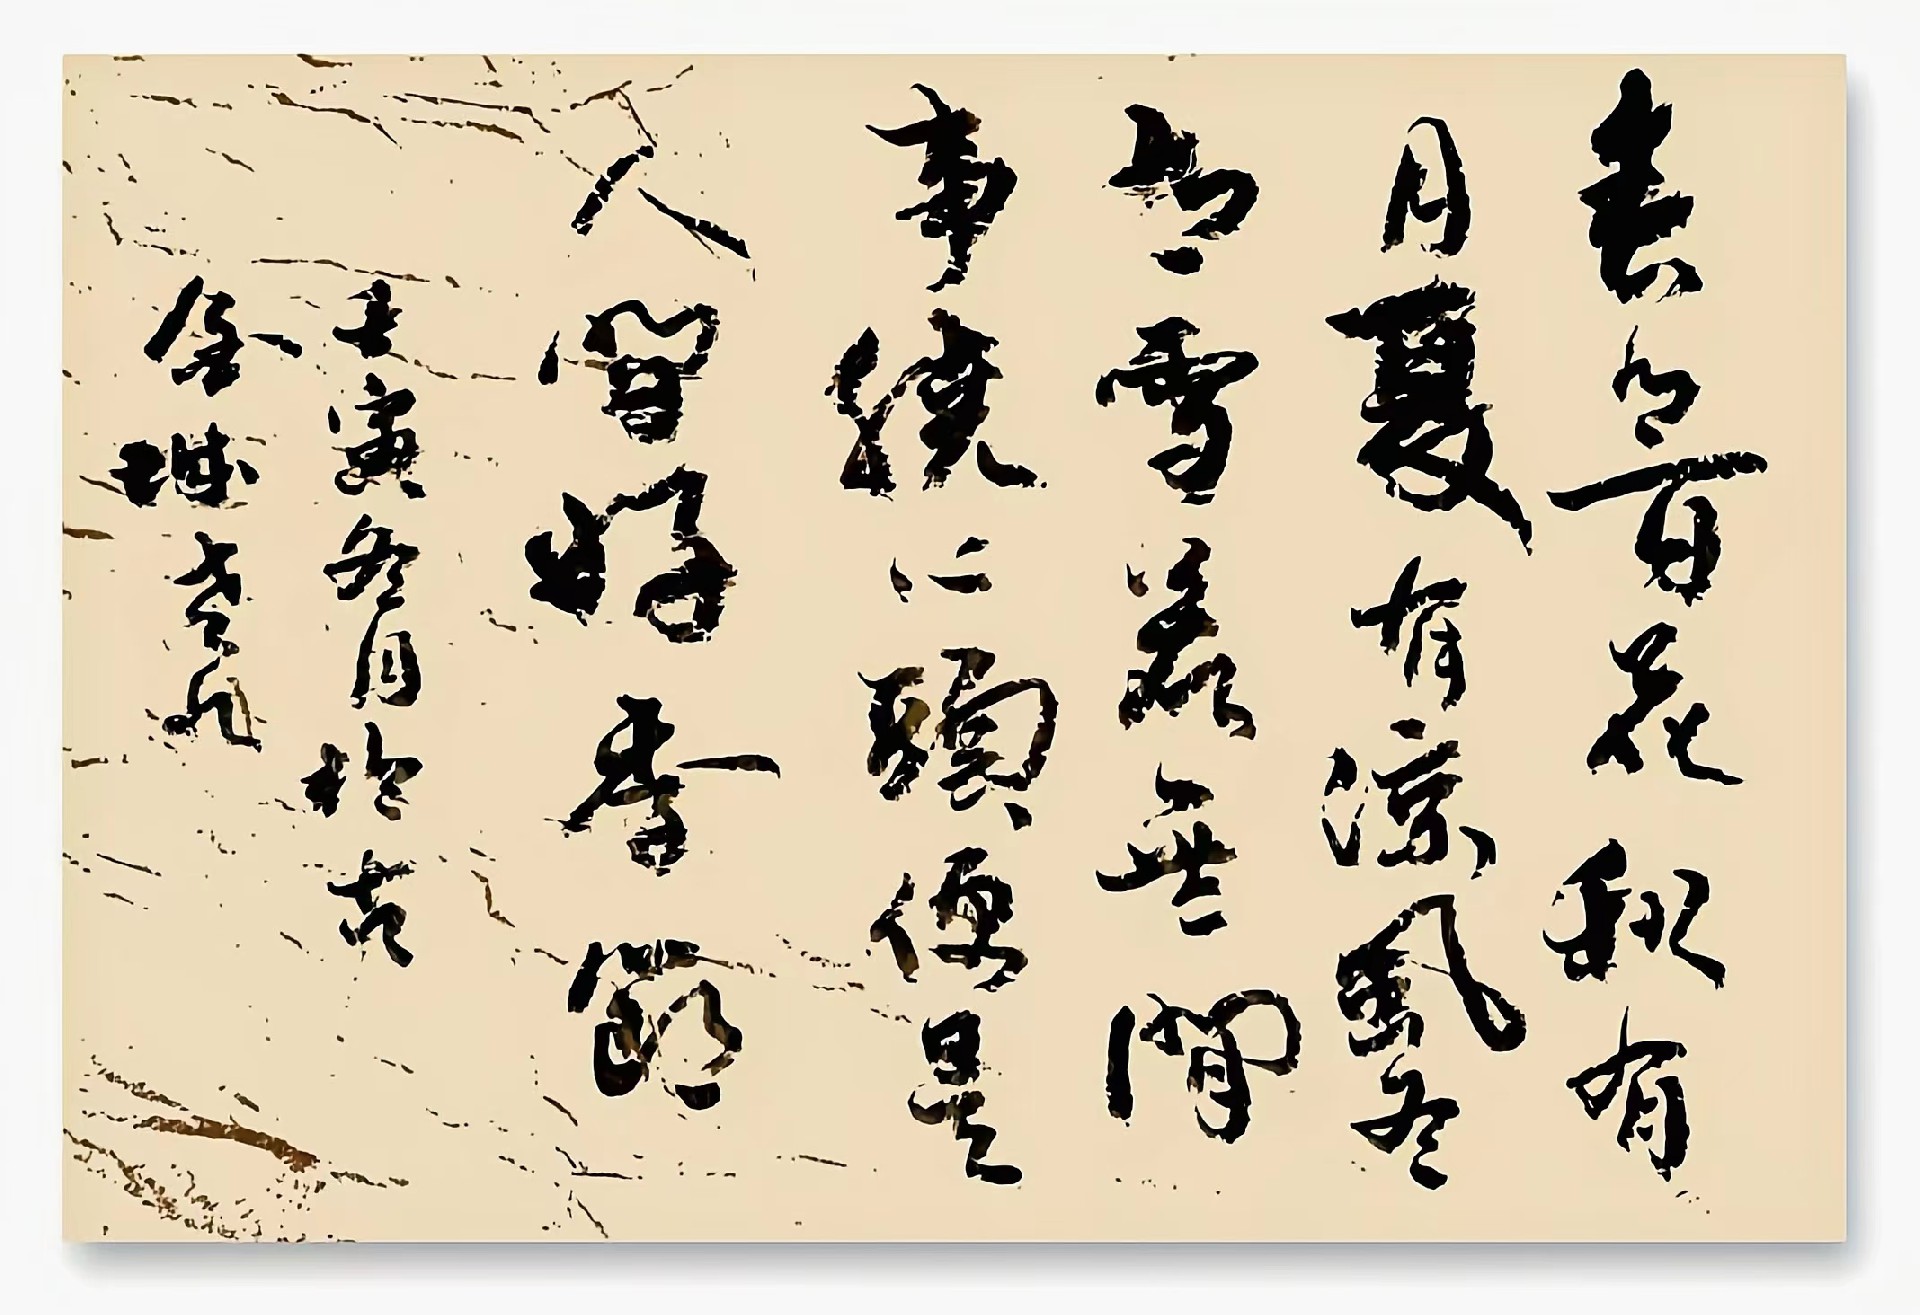 春有百花秋有
月夏有涼風冬
有雪若無閒
事繞心頭便是
人間好季節
壬寅冬月於古
金城